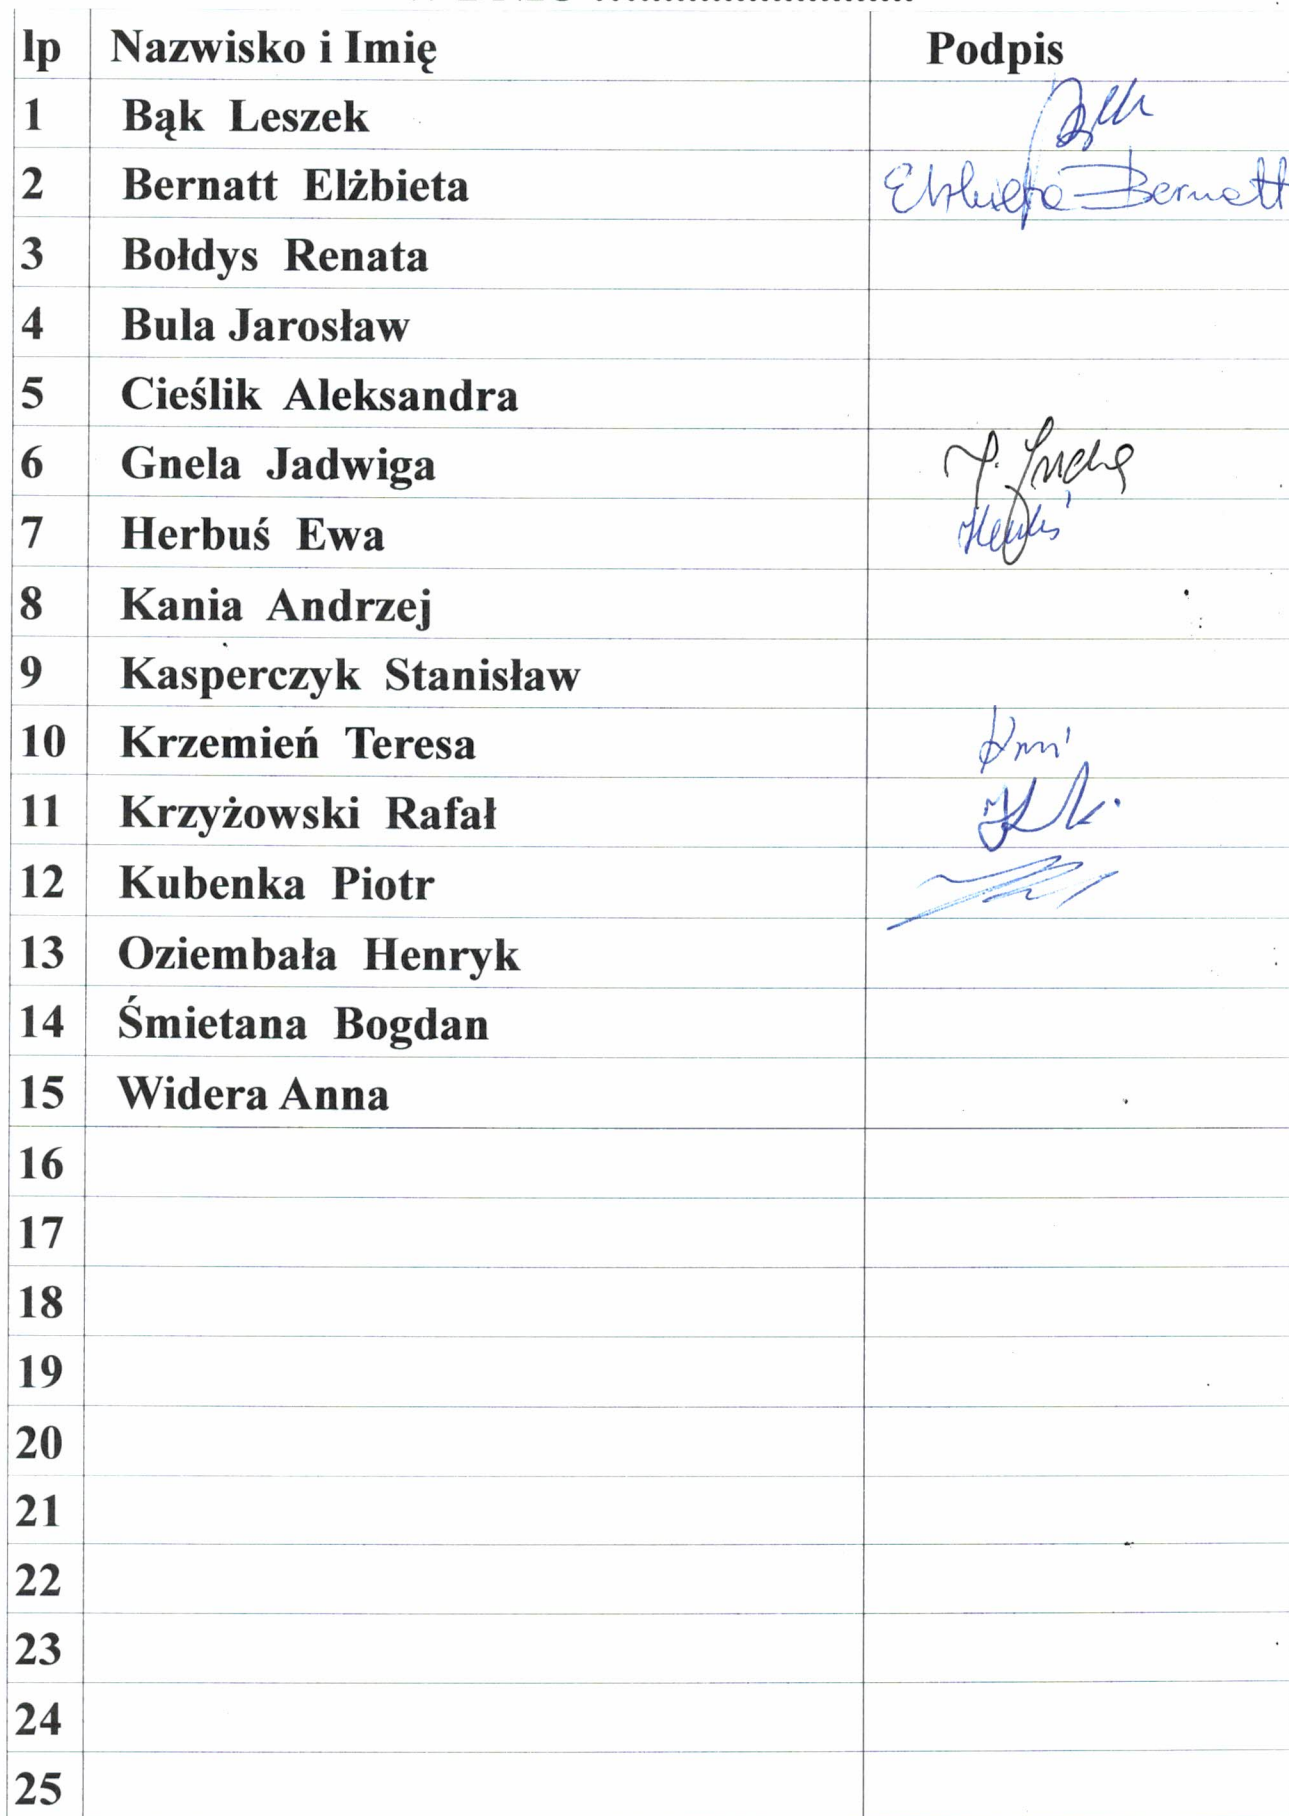 lp Nazwisko i Imię Podpis
1 Bąk Leszek
2 Bernatt Elżbieta Elżbieta Bernatt
3 Bołdys Renata
4 Bula Jarosław
5 Cieślik Aleksandra
6 Gnela Jadwiga
7 Herbuś Ewa Herbuś
8 Kania Andrzej
9 Kasperczyk Stanisław
10 Krzemień Teresa
11 Krzyżowski Rafał
12 Kubenka Piotr
13 Oziembała Henryk
14 Śmietana Bogdan
15 Widera Anna
16
17
18
19
20
21
22
23
24
25